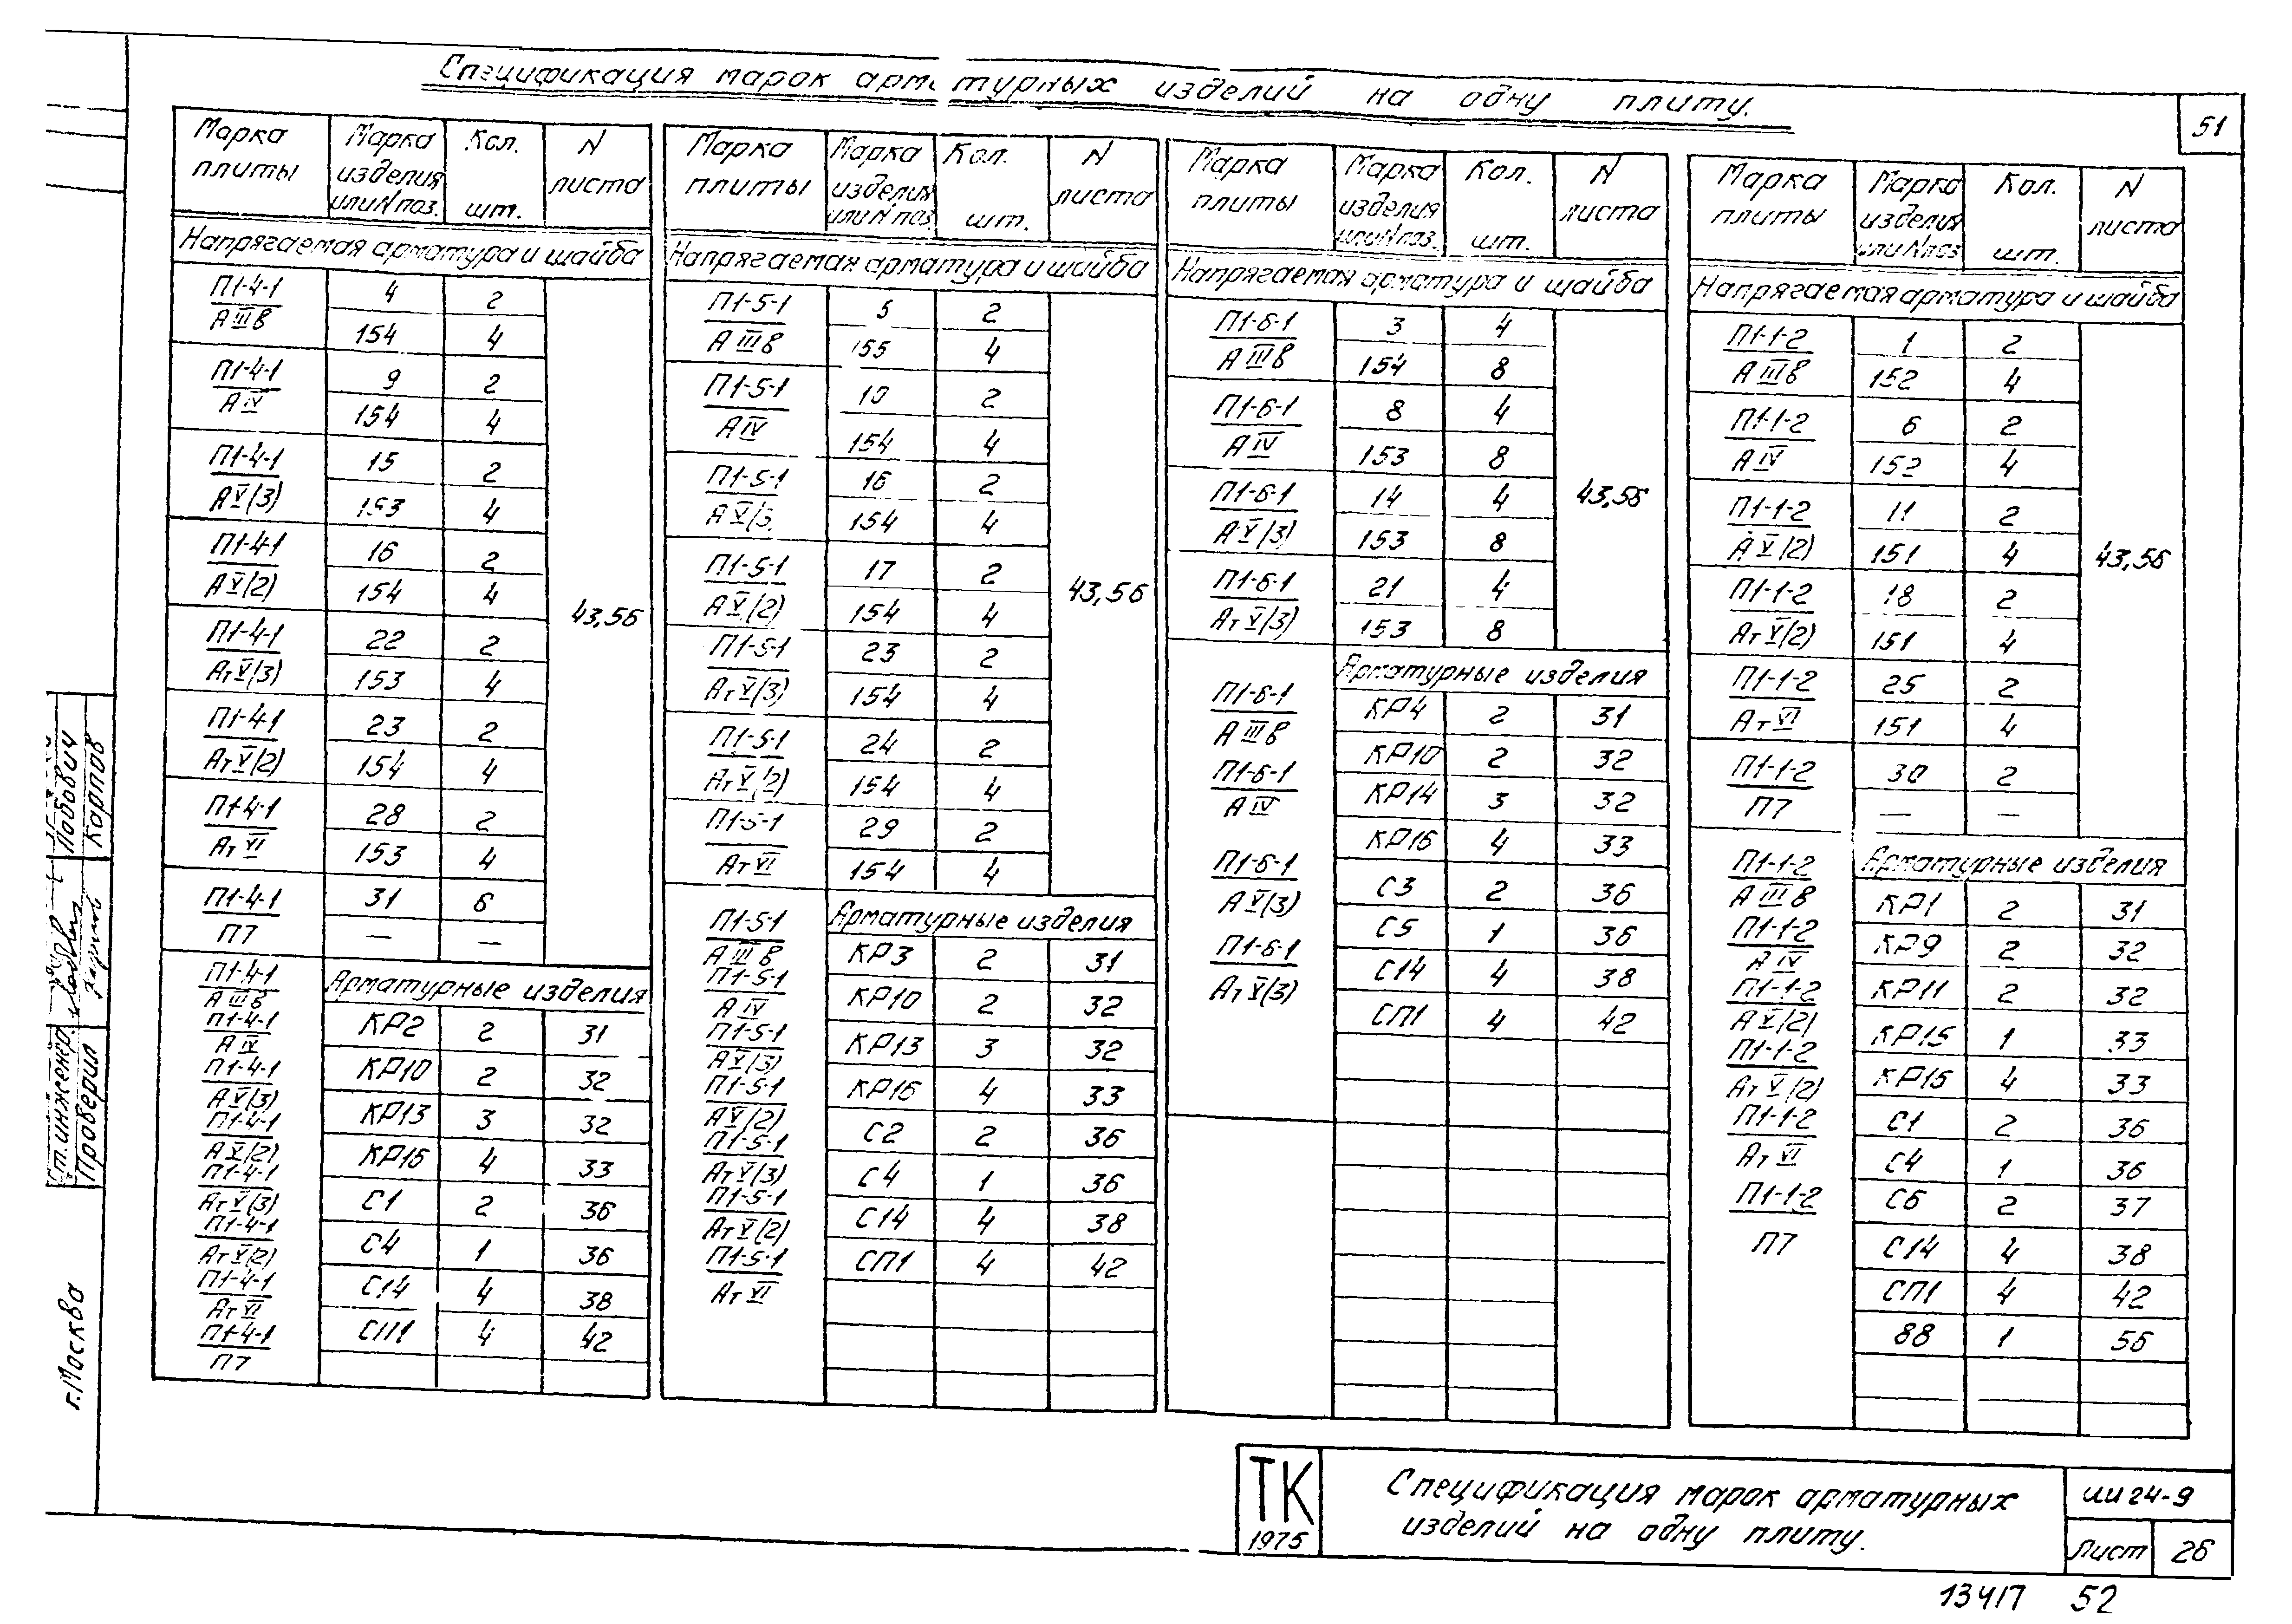 Спецификация марок арматурных изделий на одну плиту.
51
Марка плиты | Марка изделия или N поз. | Кол. шт. | N листа
Напрягаемая арматура и шайба
П1-4-1 / АIIIв | 4 | 2 | 43,56
154 | 4
П1-4-1 / АIV | 9 | 2
154 | 4
П1-4-1 / АV(3) | 15 | 2
153 | 4
П1-4-1 / АV(2) | 16 | 2
154 | 4
П1-4-1 / АтV(3) | 22 | 2
153 | 4
П1-4-1 / АтV(2) | 23 | 2
154 | 4
П1-4-1 / АтVI | 28 | 2
153 | 4
П1-4-1 / П7 | 31 | 6
— | —
Арматурные изделия
П1-4-1 / АIIIв
П1-4-1 / АIV
П1-4-1 / АV(3)
П1-4-1 / АV(2)
П1-4-1 / АтV(3)
П1-4-1 / АтV(2)
П1-4-1 / АтVI
П1-4-1 / П7
КР2 | 2 | 31
КР10 | 2 | 32
КР13 | 3 | 32
КР16 | 4 | 33
С1 | 2 | 36
С4 | 1 | 36
С14 | 4 | 38
СП1 | 4 | 42
Марка плиты | Марка изделия или N поз | Кол. шт. | N листа
Напрягаемая арматура и шайба
П1-5-1 / АIIIв | 5 | 2 | 43,56
155 | 4
П1-5-1 / АIV | 10 | 2
154 | 4
П1-5-1 / АV(3 | 16 | 2
154 | 4
П1-5-1 / АV(2) | 17 | 2
154 | 4
П1-5-1 / АтV(3) | 23 | 2
154 | 4
П1-5-1 / АтV(2) | 24 | 2
154 | 4
П1-5-1 / АтVI | 29 | 2
154 | 4
Арматурные изделия
П1-5-1 / АIIIв
П1-5-1 / АIV
П1-5-1 / АV(3)
П1-5-1 / АV(2)
П1-5-1 / АтV(3)
П1-5-1 / АтV(2)
П1-5-1 / АтVI
КР3 | 2 | 31
КР10 | 2 | 32
КР13 | 3 | 32
КР16 | 4 | 33
С2 | 2 | 36
С4 | 1 | 36
С14 | 4 | 38
СП1 | 4 | 42
Марка плиты | Марка изделия или N поз. | Кол. шт. | N листа
Напрягаемая арматура и шайба
П1-6-1 / АIIIв | 3 | 4 | 43,56
154 | 8
П1-6-1 / АIV | 8 | 4
153 | 8
П1-6-1 / АV(3) | 14 | 4
153 | 8
П1-6-1 / АтV(3) | 21 | 4
153 | 8
Арматурные изделия
П1-6-1 / АIIIв
П1-6-1 / АIV
П1-6-1 / АV(3)
П1-6-1 / АтV(3)
КР4 | 2 | 31
КР10 | 2 | 32
КР14 | 3 | 32
КР16 | 4 | 33
С3 | 2 | 36
С5 | 1 | 36
С14 | 4 | 38
СП1 | 4 | 42
Марка плиты | Марка изделия или N поз | Кол. шт. | N листа
Напрягаемая арматура и шайба
П1-1-2 / АIIIв | 1 | 2 | 43,56
152 | 4
П1-1-2 / АIV | 6 | 2
152 | 4
П1-1-2 / АV(2) | 11 | 2
151 | 4
П1-1-2 / АтV(2) | 18 | 2
151 | 4
П1-1-2 / АтVI | 25 | 2
151 | 4
П1-1-2 / П7 | 30 | 2
— | —
Арматурные изделия
П1-1-2 / АIIIв
П1-1-2 / АIV
П1-1-2 / АV(2)
П1-1-2 / АтV(2)
П1-1-2 / АтVI
П1-1-2 / П7
КР1 | 2 | 31
КР9 | 2 | 32
КР11 | 2 | 32
КР15 | 1 | 33
КР16 | 4 | 33
С1 | 2 | 36
С4 | 1 | 36
С6 | 2 | 37
С14 | 4 | 38
СП1 | 4 | 42
88 | 1 | 56
Ст. инженер
Лабович
Проверил
Карпов
г. Москва
ТК
1975
Спецификация марок арматурных
изделий на одну плиту.
ИИ24-9
Лист 26
13417 52